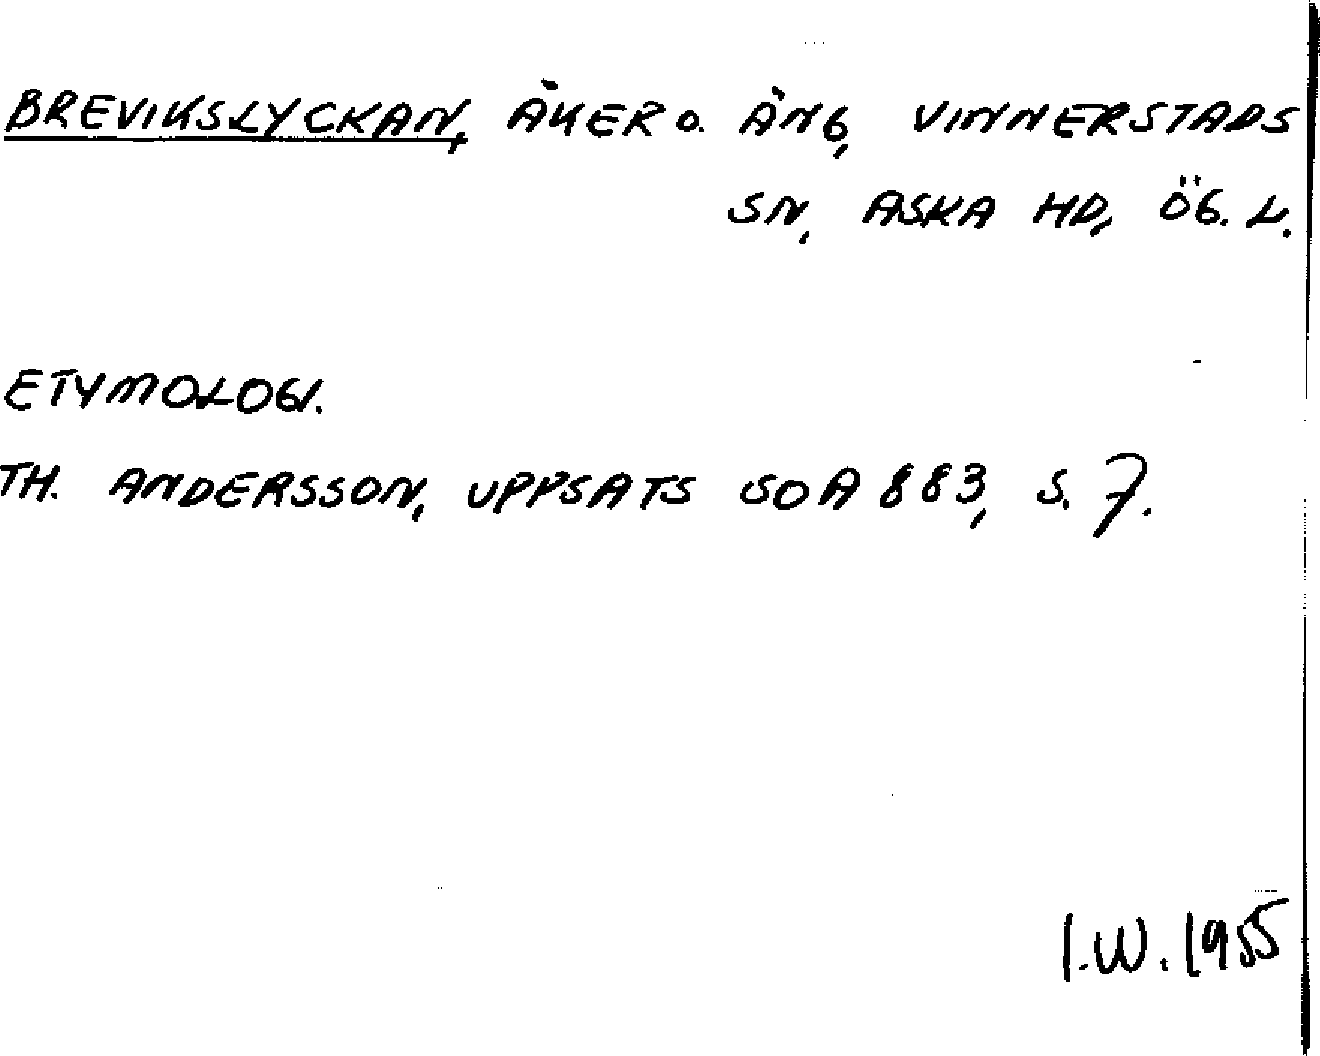 BREVIKSLYCKAN, ÅKER O. ÄNG, VINNERSTADS
SN, ASKA HD, ÖG. L.
ETYMOLOGI.
TH. ANDERSSON, UPPSATS SOA 883, S. 7.
I.W. 1955